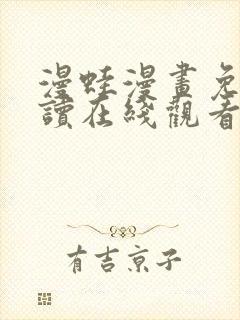 漫蛙漫畫免
讀在綫觀看
有吉京子